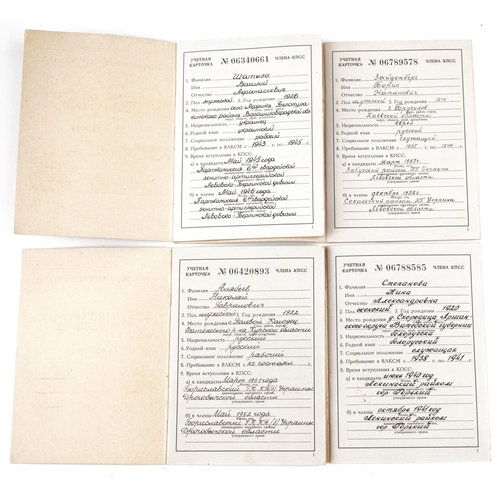 УЧЕТНАЯ КАРТОЧКА № 06340661 ЧЛЕНА КПСС
1. Фамилия Шатило
Имя Василий
Отчество Афанасиевич
2. Пол мужской 3. Год рождения 1926
4. Место рождения село
5. Национальность украинец
6. Родной язык украинский
7. Социальное положение рабочий
8. Пребывание в ВЛКСМ с 1943 по 1945 г.
9. Время вступления в КПСС:
а) в кандидаты Май 1945 года
Парткомиссия 6ой гвардейской
зенитно-артиллерийской
Львовско-Берлинской дивизии
б) в члены Май 1946 года
Парткомиссия 6ой гвардейской
зенитно-артиллерийской
Львовско-Берлинской дивизии
1
УЧЕТНАЯ КАРТОЧКА № 06789578 ЧЛЕНА КПСС
1. Фамилия Зайденберг
Имя Борис
Отчество Натанович
2. Пол мужской 3. Год рождения 1914
4. Место рождения
Киевской области
5. Национальность еврей
6. Родной язык русский
7. Социальное положение служащий
8. Пребывание в ВЛКСМ с
9. Время вступления в КПСС:
а) в кандидаты март 1957г.
Забугский райком КП Украины
Львовской области
б) в члены декабрь 1958г.
Сокальский райком КП Украины
Львовской области
1
УЧЕТНАЯ КАРТОЧКА № 06420893 ЧЛЕНА КПСС
1. Фамилия Алябьев
Имя Николай
Отчество Гаврилович
2. Пол мужской 3. Год рождения 1922
4. Место рождения Колодец,
р-на, Курской области
5. Национальность русский
6. Родной язык русский
7. Социальное положение рабочий
8. Пребывание в ВЛКСМ не состоял
9. Время вступления в КПСС:
а) в кандидаты Март 1951 года
Бориславский ГК КП(б) Украины
Дрогобычской области
б) в члены Май 1952 года
Бориславский ГК КП(б) Украины
Дрогобычской области
1
УЧЕТНАЯ КАРТОЧКА № 06788585 ЧЛЕНА КПСС
1. Фамилия Степанова
Имя Нина
Отчество Александровна
2. Пол женский 3. Год рождения 1920
4. Место рождения д.
Витебской губернии
5. Национальность белоруска
6. Родной язык белорусский
7. Социальное положение служащая
8. Пребывание в ВЛКСМ с 1938 по 1941 г.
9. Время вступления в КПСС:
а) в кандидаты июнь 1940 год
Ленинский райком
гор. Горький
б) в члены октябрь 1941 год
Ленинский райком
гор. Горький
1